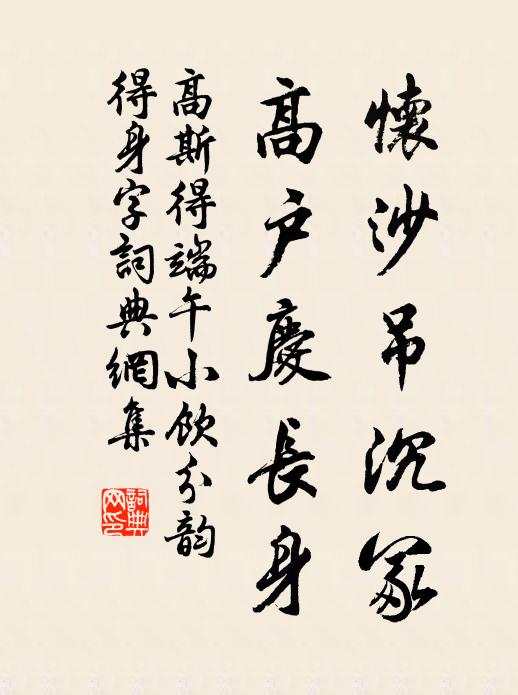 懷沙吊沉冢
高戶慶長身
高斯得端午小飲分韵
得身字詞典網集
詞典网印